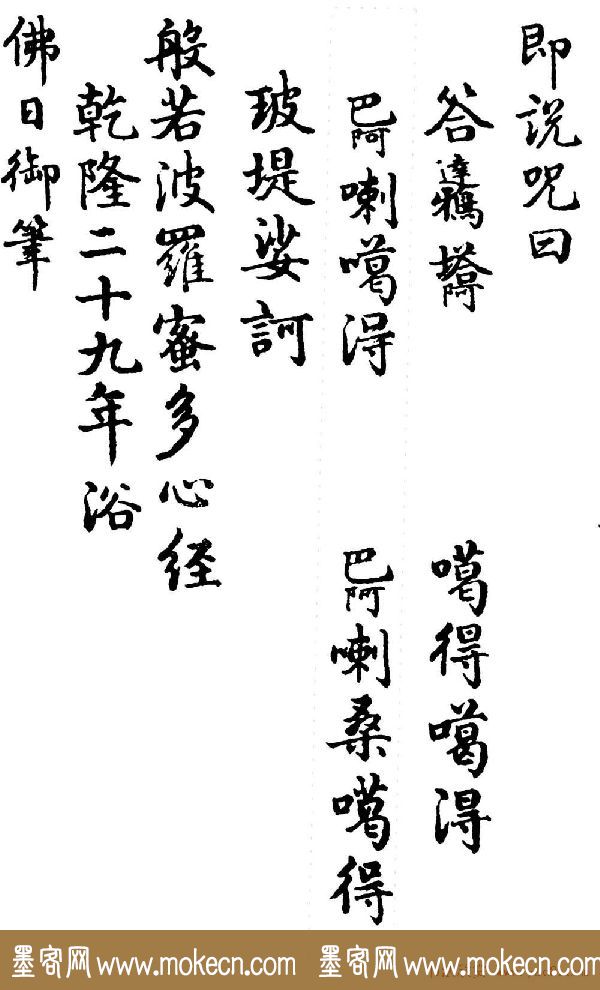 即說呪曰
答達鴉塔阿 噶得噶得
巴阿喇噶得 巴阿喇桑噶得
玻堤娑訶
般若波羅蜜多心経
乾隆二十九年浴
佛日御筆
墨客网 www.mokecn.com 墨客网 www.mokecn.com